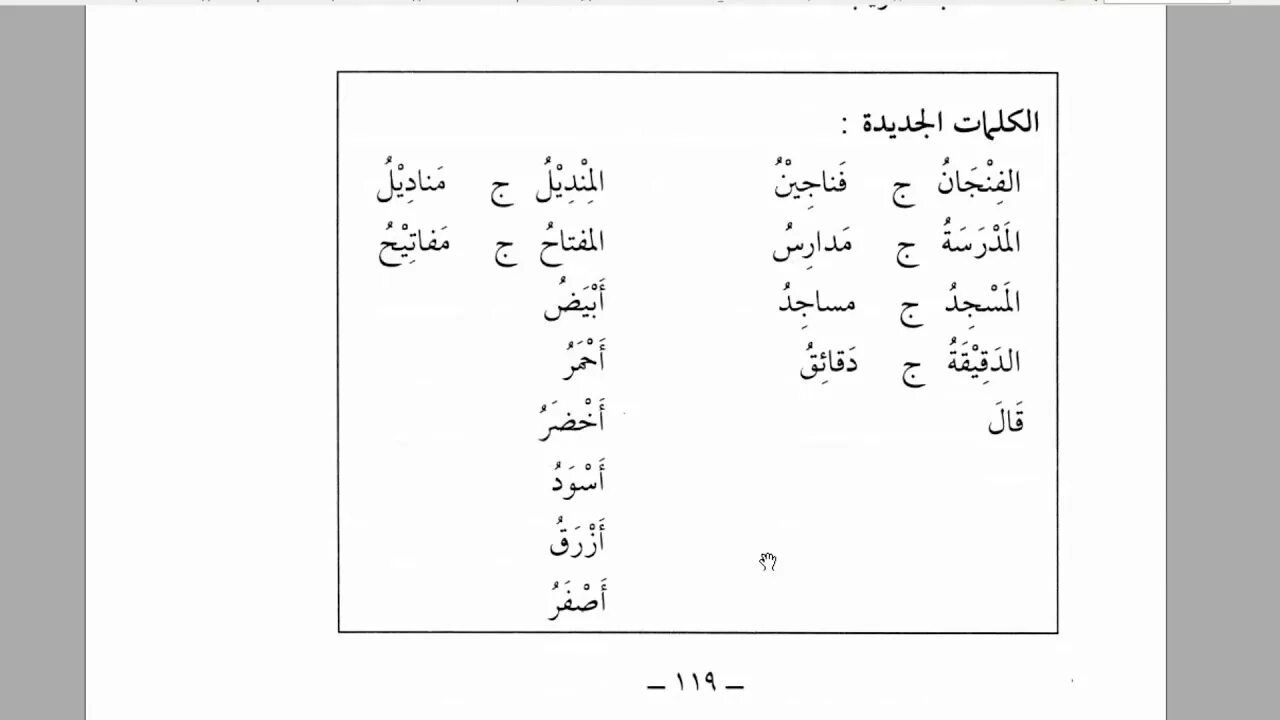 الكلمات الجديدة :
الفِنْجَانُ ج فَناجِيْنُ المِنْدِيْلُ ج مَنادِيْلُ
المَدْرَسَةُ ج مَدارِسُ المفتاحُ ج مَفاتِيْحُ
المَسْجِدُ ج مساجِدُ أَبْيَضُ
الدَقِيْقَةُ ج دَقائِقُ أَحْمَرُ
قَالَ أَخْضَرُ
أَسْوَدُ
أَزْرَقُ
أَصْفَرُ
– ١١٩ –